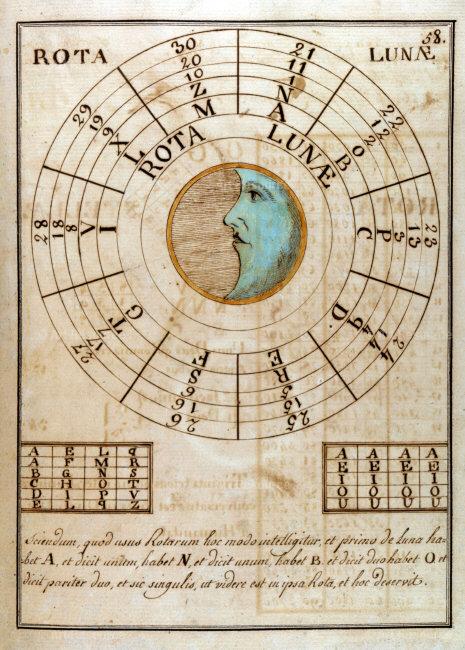 58.
ROTA LUNÆ
ROTA LUNÆ
21 11 1 N A
22 12 O B
23 13 3 P C
24 14 4 q D
25 15 5 R E
26 16 6 S F
27 17 7 T G
28 18 8 V I
29 19 9 X L
30 20 10 Z M
A E L q
A F M R
B G N S
C H O T
D I P V
E L q Z
A A A A
E E E E
I I I I
O O O O
U U U U
Sciendum, quod usus Rotarum hoc modo intelligitur, et primo de luna ha-
bet A, et dicit unum, habet N, et dicit unum, habet B. et dicit duo habet O, et
dicit pariter duo, et sic singulis, ut videre est in ipsa Rota, et hoc deservit.